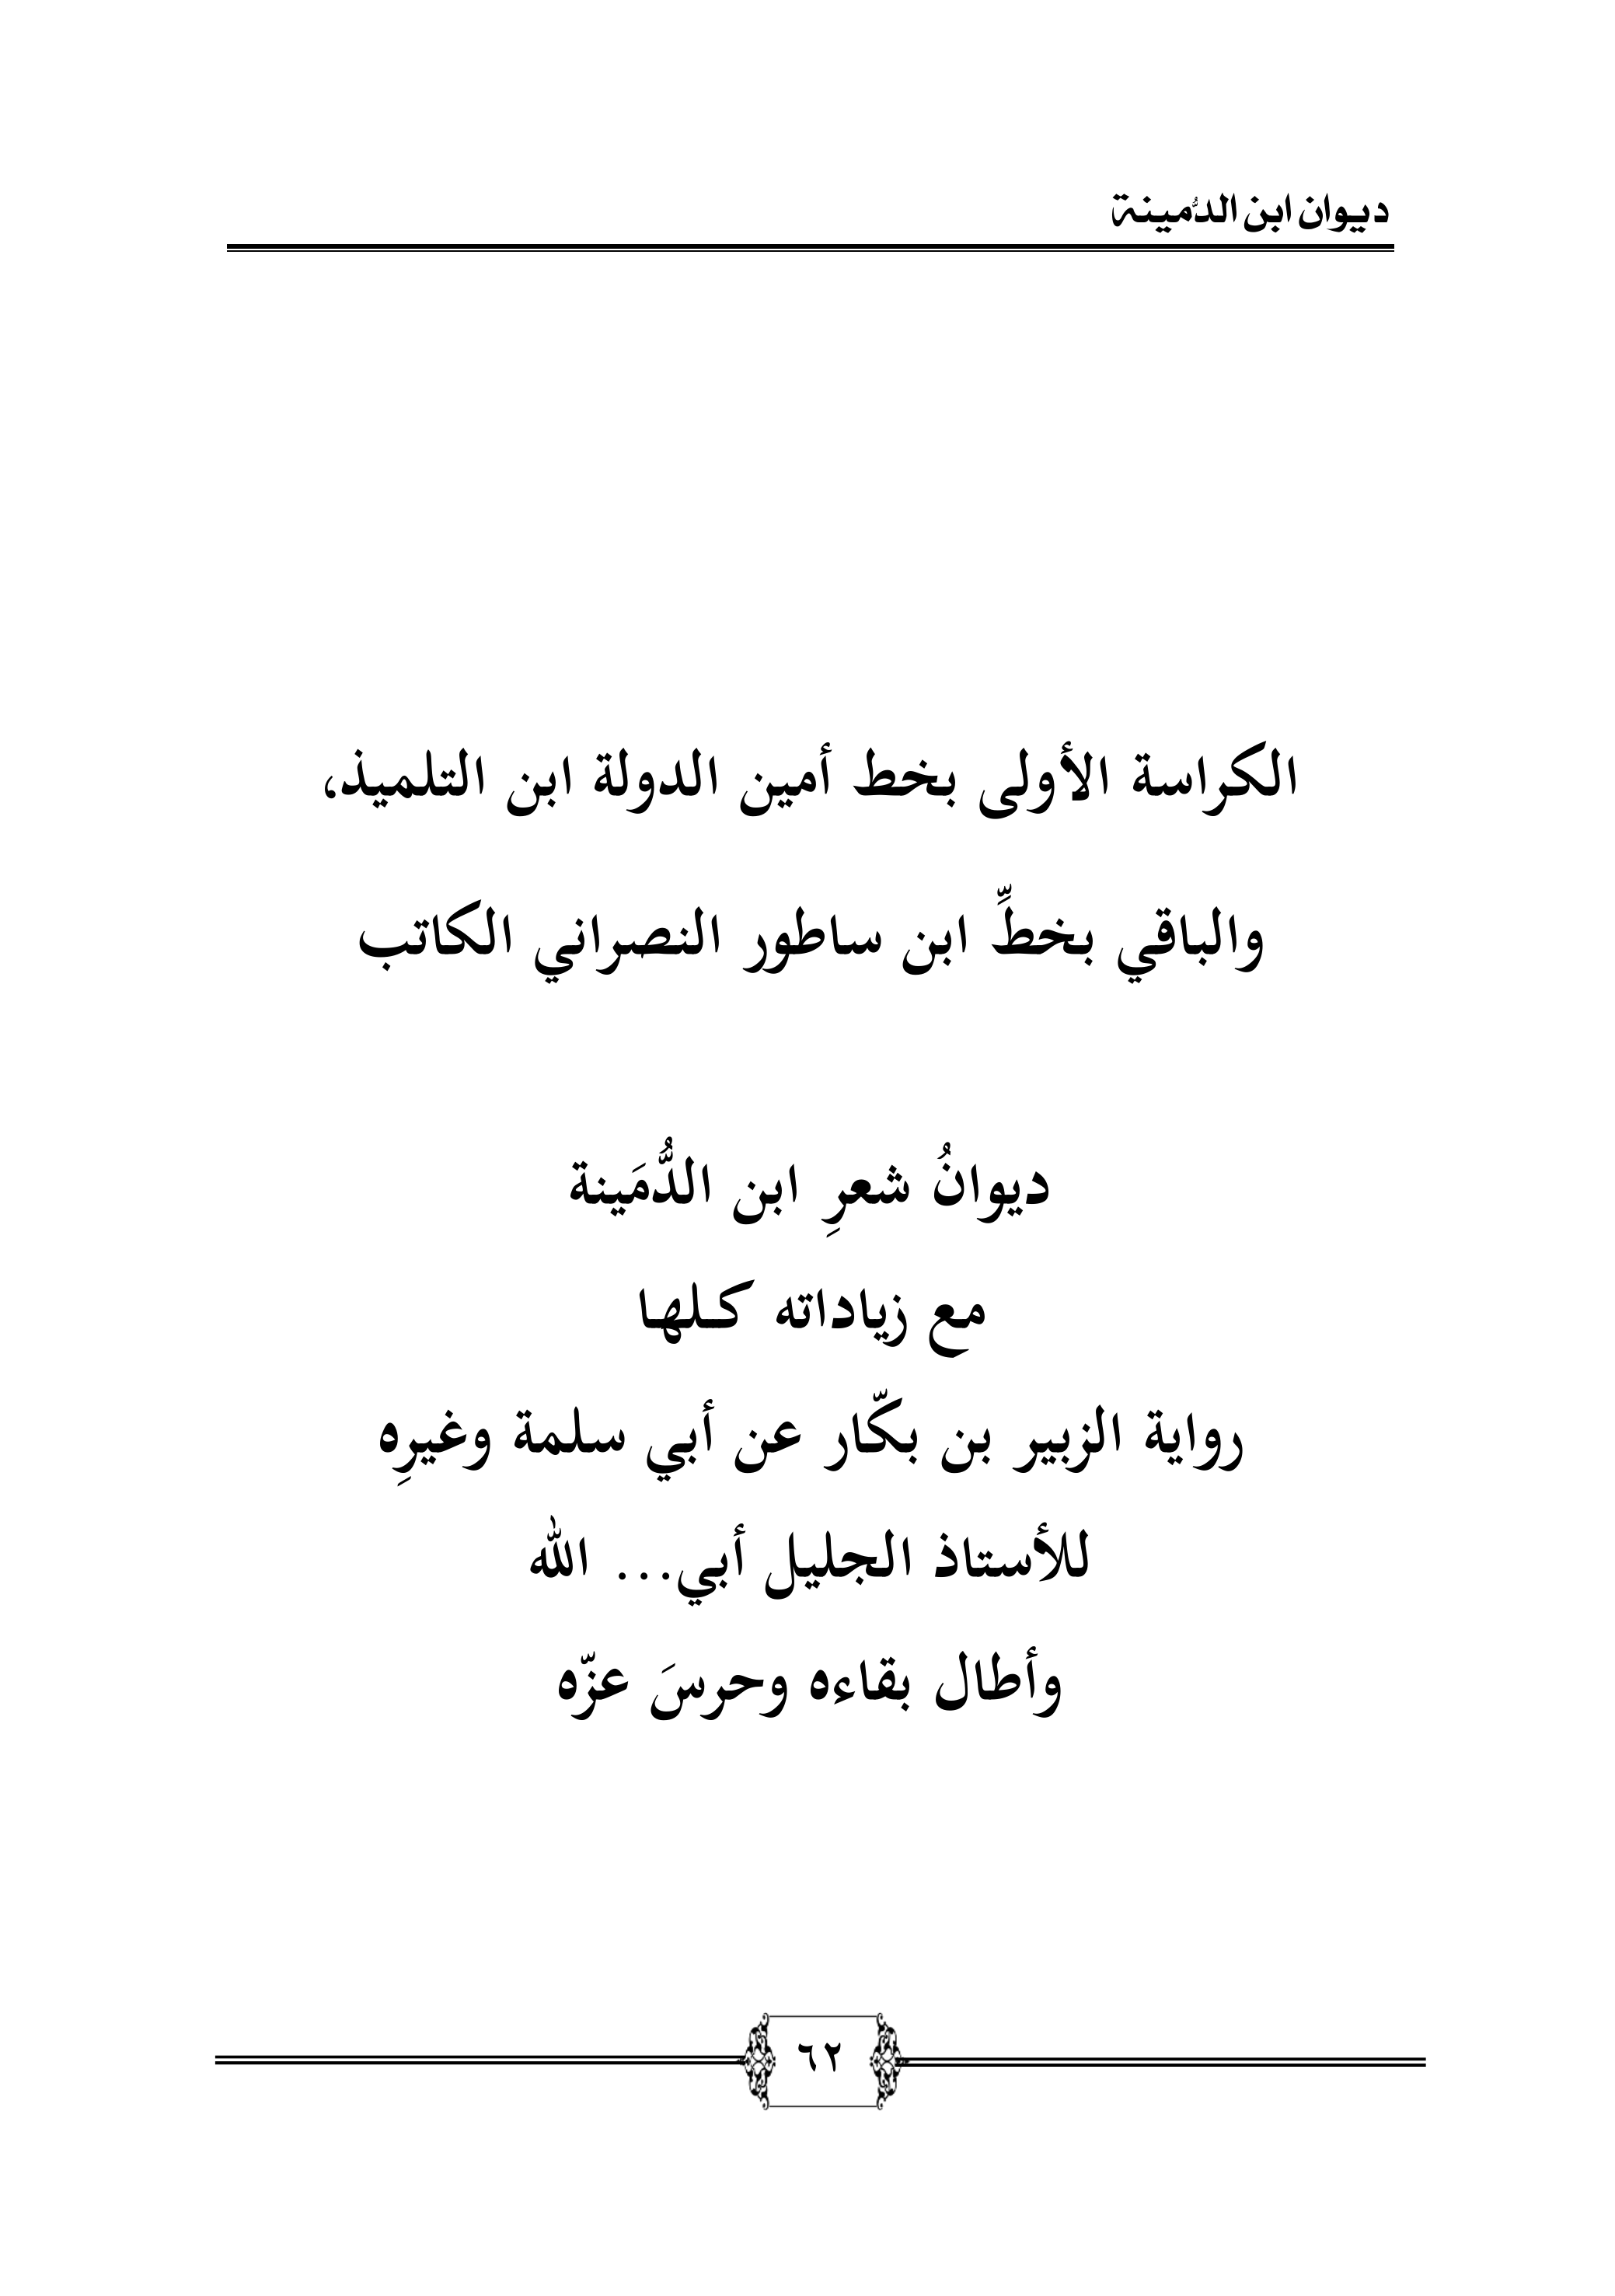 ديوان ابن الدُّمينة
الكراسة الأولى بخط أمين الدولة ابن التلميذ،
والباقي بخطِّ ابن ساطور النصراني الكاتب
ديوانُ شعرِ ابن الدُّمَينة
مع زياداته كلها
رواية الزبير بن بكّار عن أبي سلمة وغيرِه
للأستاذ الجليل أبي... الله
وأطال بقاءه وحرسَ عزّه
٦٢